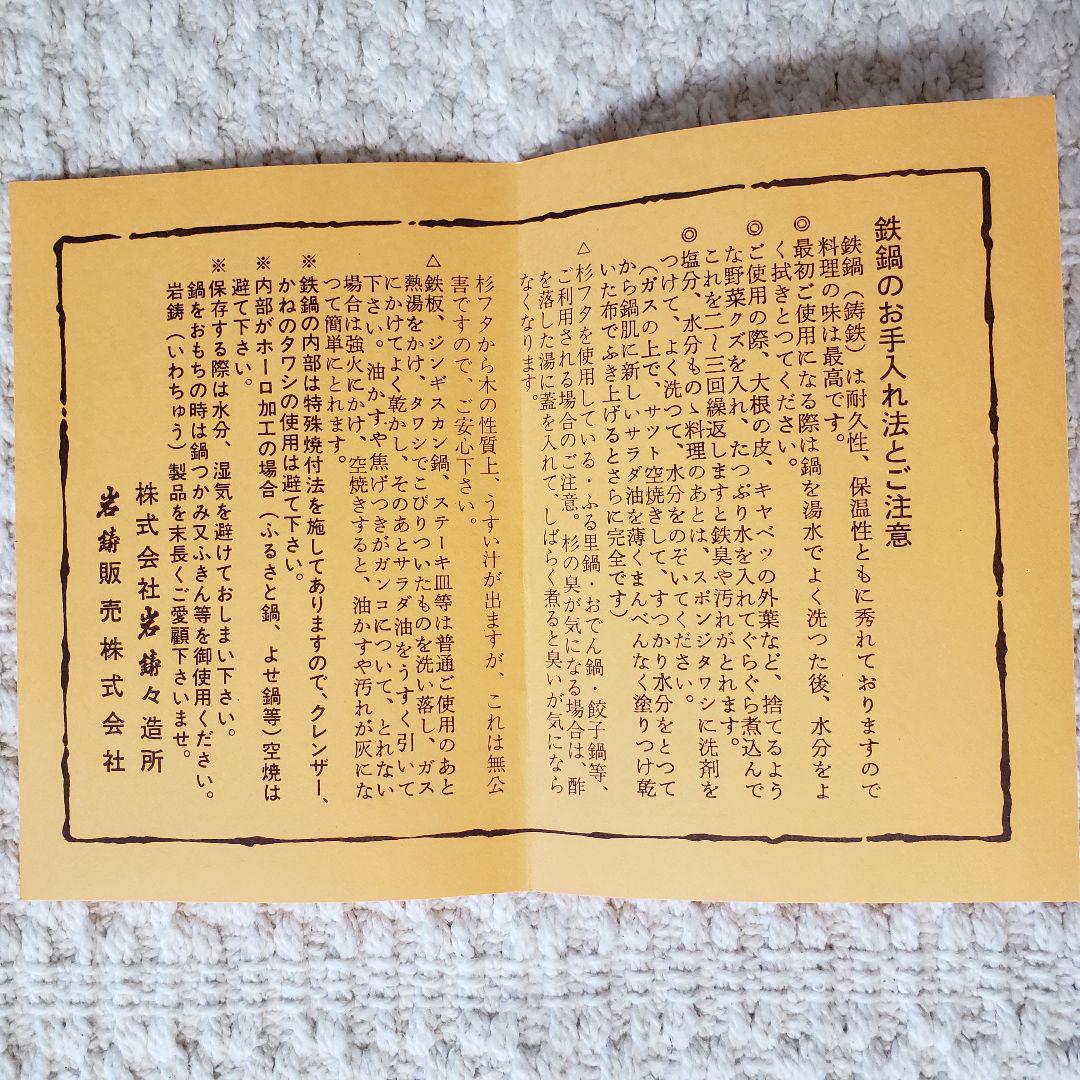 鉄鍋のお手入れ法とご注意
鉄鍋（鋳鉄）は耐久性、保温性ともに秀れておりますので
料理の味は最高です。
◎最初ご使用になる際は鍋を湯水でよく洗つた後、水分をよ
く拭きとつてください。
◎ご使用の際、大根の皮、キヤベツの外葉など、捨てるよう
な野菜クズを入れ、たつぷり水を入れてぐらぐら煮込んで
これを二〜三回繰返しますと鉄臭や汚れがとれます。
◎塩分、水分ものゝ料理のあとは、スポンジタワシに洗剤を
つけて、よく洗つて、水分をのぞいてください。
（ガスの上で、サツト空焼きして、すつかり水分をとつて
から鍋肌に新しいサラダ油を薄くまんべんなく塗りつけ乾
いた布でふき上げるとさらに完全です）
△杉フタを使用している・ふる里鍋・おでん鍋・餃子鍋等、
ご利用される場合のご注意。杉の臭が気になる場合は、酢
を落した湯に蓋を入れて、しばらく煮ると臭いが気になら
なくなります。
杉フタから木の性質上、うすい汁が出ますが、これは無公
害ですので、ご安心下さい。
△鉄板、ジンギスカン鍋、ステーキ皿等は普通ご使用のあと
熱湯をかけ、タワシでこびりついたものを洗い落し、ガス
にかけてよく乾かし、そのあとサラダ油をうすく引いて
下さい。油かすや焦げつきがガンコについて、とれない
場合は強火にかけ、空焼きすると、油かすや汚れが灰にな
つて簡単にとれます。
※鉄鍋の内部は特殊焼付法を施してありますので、クレンザー、
かねのタワシの使用は避て下さい。
※内部がホーロ加工の場合（ふるさと鍋、よせ鍋等）空焼は
避て下さい。
※保存する際は水分、湿気を避けておしまい下さい。
鍋をおもちの時は鍋つかみ又ふきん等を御使用ください。
岩鋳（いわちゅう）製品を末長くご愛顧下さいませ。
株式会社岩鋳々造所
岩鋳販売株式会社